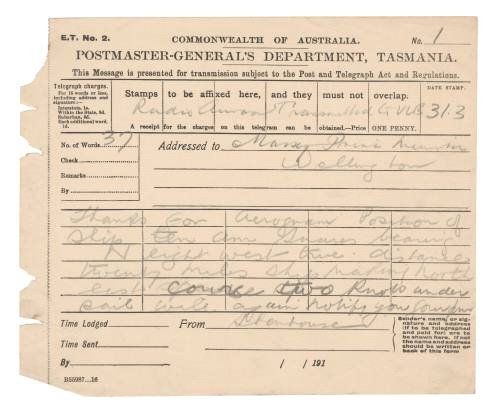 E.T. No. 2.
COMMONWEALTH OF AUSTRALIA.
No. 1
POSTMASTER-GENERAL'S DEPARTMENT, TASMANIA.
This Message is presented for transmission subject to the Post and Telegraph Act and Regulations.
Telegraph charges.
For 16 words or less, including address and signature:—
Interstate, 1s.
Within the State, 9d.
Suburban, 6d.
Each additional word, 1d.
Stamps to be affixed here, and they must not overlap.
DATE STAMP.
Radio Transmitted to VLB 31.3
A receipt for the charges on this telegram can be obtained.—Price ONE PENNY.
No. of Words 37
Check
Remarks
By
Addressed to Massey Prime Minister
Wellington
Thanks for Aerogram Position of
ship ten am Snares bearing
N eight west true distance
twenty miles ship making North
east course two knots under
sail will again notify you
Time Lodged
From Stenhouse
Time Sent
By / / 191
Sender's name or signature and address (if to be telegraphed and paid for) are to be shown here. If not the name and address should be written on back of this form
B55987.—16